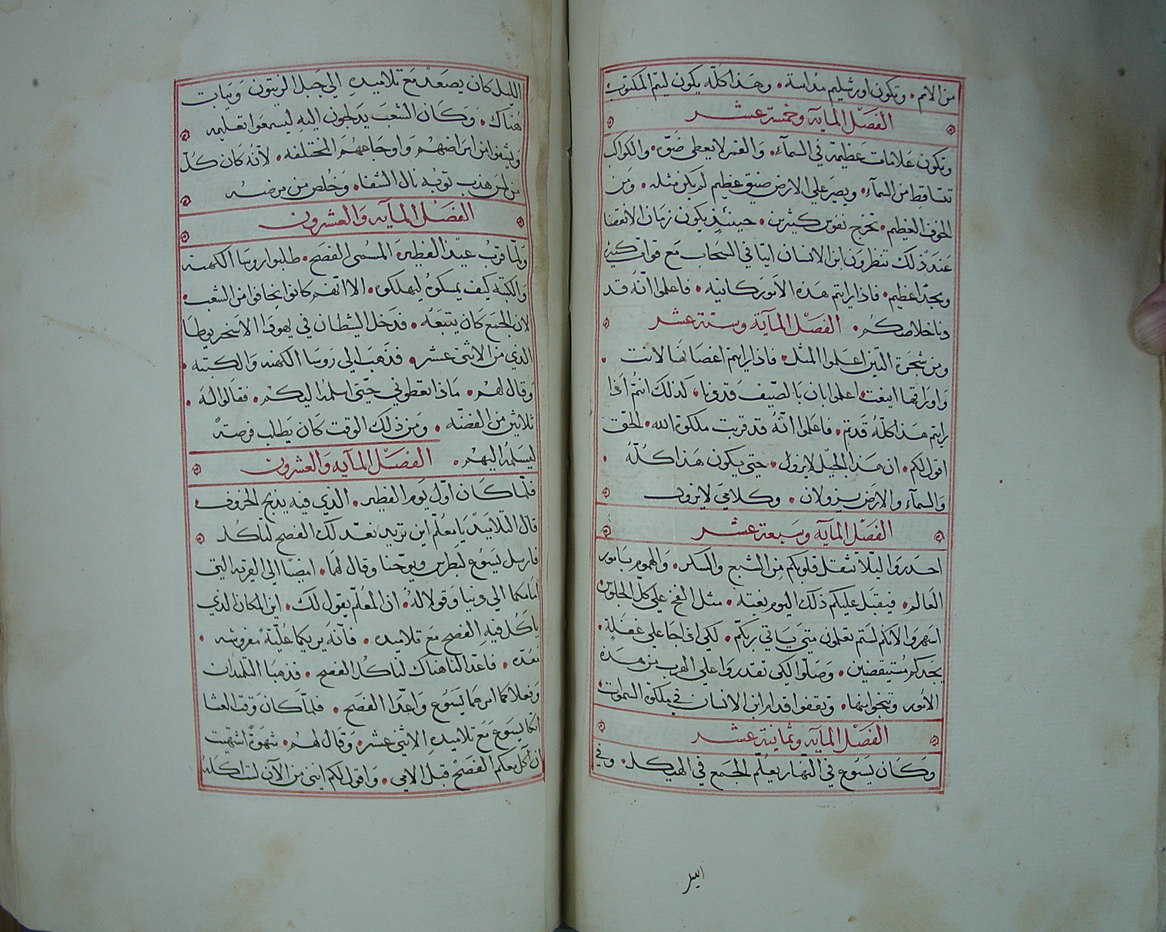 من الامم. وتكون اورشليم مداسة. وهذا كله يكون ليتم المكتوب
الفصل المايه وخمسة عشر
وتكون علامات عظيمة في السماء. والقمر لا يعطي ضوّ. والكواكب
تتساقط من السماء. ويصير علي الارض ضيق عظيم لم يكن مثله. ومن
الخوف العظيم. تخرج نفوس كثيرين. حينيذ يكون زمان الانقضا
عند ذلك تنظرون ابن الانسان اتيا في السحاب مع قوات كثيره
وبمجد اعظيم. فاذا رايتم هذه الامور كاينه. فاعلموا انه قد
دنا خلاصكم. الفصل المايه وستة عشر
ومن شجرة التين اعلموا المثل. فاذا رايتم اغصانها لانت
واوراقها اينعت. اعلموا بان بالصيف قد دنا. كذلك انتم اذا
رايتم هذا كله قد تم. فاعلموا انه قد قربت ملكوة الله. الحق
اقول لكم. ان هذا الجيل لا يزول. حتي يكون هذا كله.
والسماء والارض يزولان. وكلامي لا يزول
الفصل المايه وسبعة عشر
احدروا ليلا تثقل قلوبكم من الشبع والسكر. والهموم بامور
العالم. فيقبل عليكم ذلك اليوم بغتة. مثل الفخ علي كل الجلوس
اسهروا لانكم لستم تعلمون متي ياتي ربكم. لكي اذا جا علي غفلة.
يجدكم مستيقضين. وصلوا لكي تقدروا علي الهرب من هذه
الامور وتنجوا منها. وتقفوا قدام ابن الانسان في ملكوة السموات
الفصل المايه وثمانية عشر
وكان يسوع في النهار يعلم الجمع في الهيكل. وفي
الليل كان يصعد مع تلاميده الي جبل الزيتون ويبات
هناك. وكان الشعب يدلجون اليه ليسمعوا تعليمه
ويشفوا من امراضهم واوجاعهم المختلفه. لانه كان كل
من لمس هدب توبه نال الشفا. وخلص من مرضه
الفصل المايه والعشرون
ولما قرب عيد الفطير المسمي الفصح. طلبوا روسا الكهنه
والكتبة كيف يمسكوه ليهلكوه. الا انهم كانوا يخافوا من الشعب.
لان الجمع كان يتبعه. فدخل الشيطان في يهودا الاسخريوطي
الدي من الاثني عشر. فدهب الي روسا الكهنه والكتبه.
وقال لهم. ماذا تعطوني حتي اسلمه اليكم. فقالوا له.
ثلاثين من الفضة. ومن ذلك الوقت كان يطلب فرصة
ليسلمه اليهم. الفصل المايه والعشرون
فلما كان اول يوم الفطير. الدي فيه يدبح الخروف
قال التلاميد يا معلم اين تريد نعد لك الفصح لتاكل.
فارسل يسوع بطرس ويوحنا وقال لهما. امضيا الي القريه التي
امامكما الي ونيا وقولا له. ان المعلم يقول لك. اين المكان الدي
ياكل فيه الفصح مع تلاميده. فانه يريكما علّيّة مفروشه.
معده. فاعدا لنا هناك لناكل الفصح. فدهبا التلميدان
وفعلا كما امرهما يسوع واعدا الفصح. فلما كان وقت العشا
اتكا يسوع مع تلاميده الاثني عشر. وقال لهم. شهوة اشتهيت
ان اكل معكم الفصح قبل الامي. واقول لكم انني من الآن لست اكله